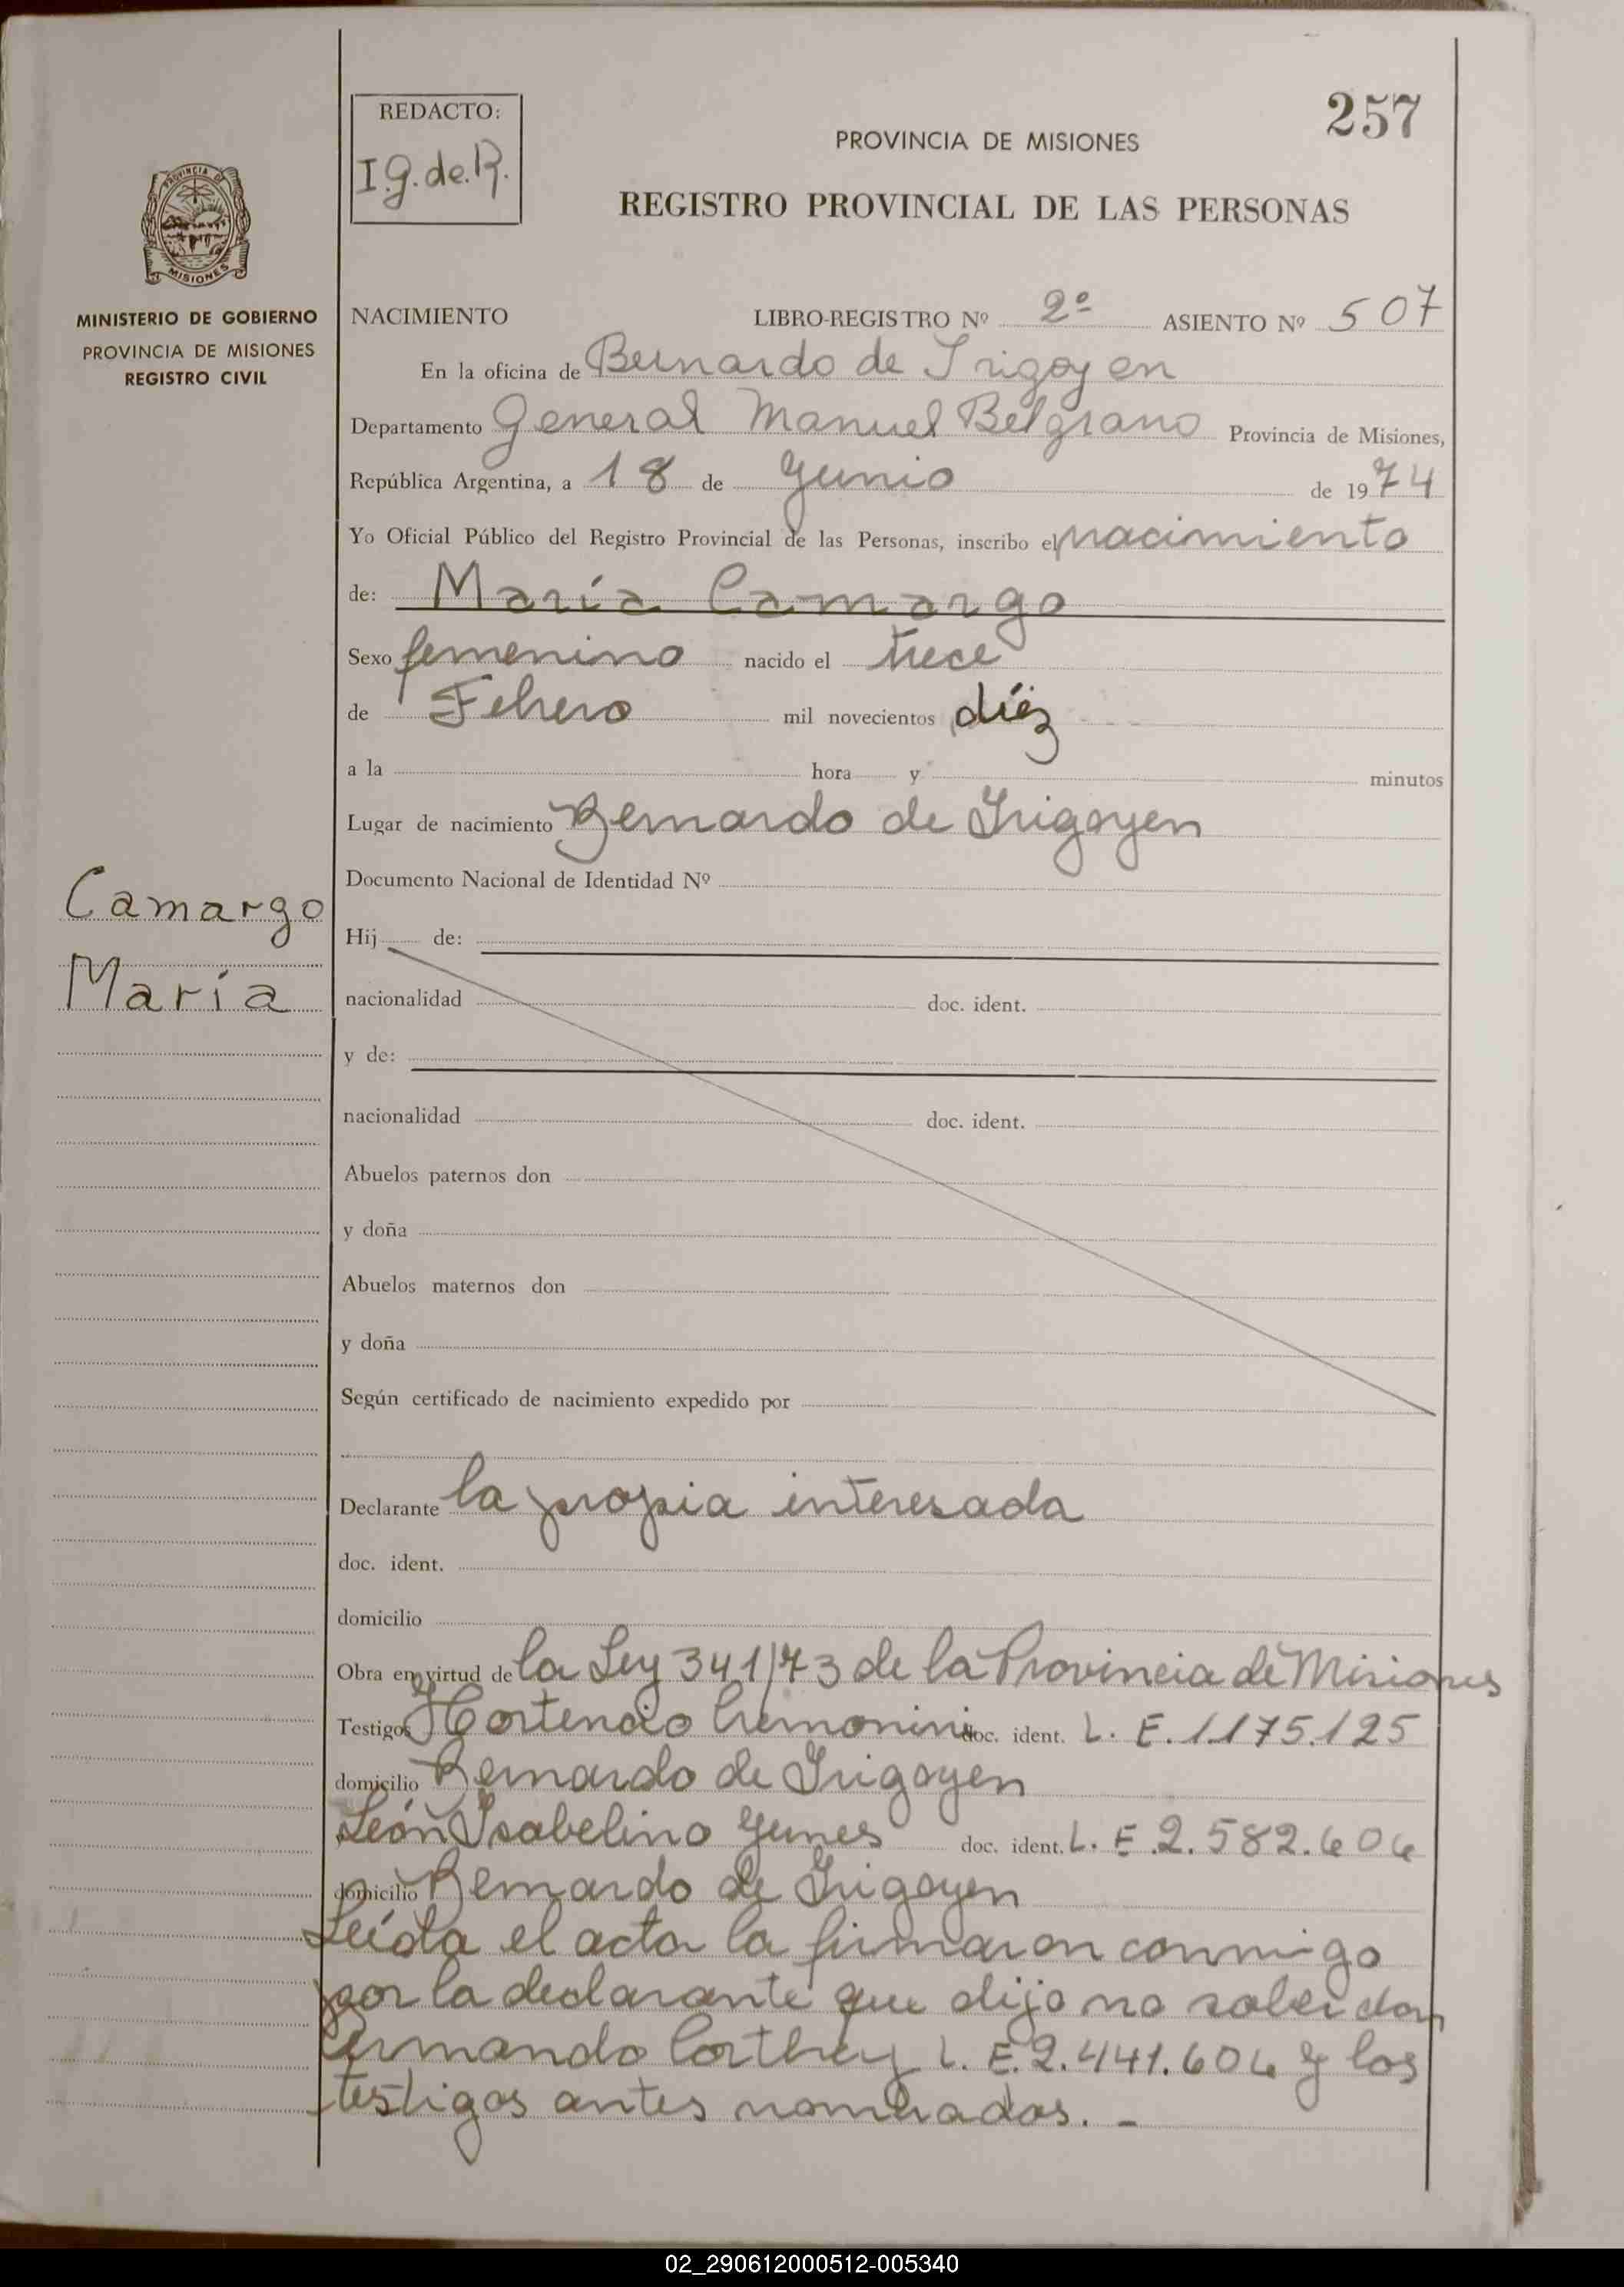 257
REDACTO:
I.G.de.R.
PROVINCIA DE MISIONES
REGISTRO PROVINCIAL DE LAS PERSONAS
PROVINCIA DE
MISIONES
MINISTERIO DE GOBIERNO
PROVINCIA DE MISIONES
REGISTRO CIVIL
NACIMIENTO LIBRO-REGISTRO Nº 2º ASIENTO Nº 507
En la oficina de Bernardo de Irigoyen
Departamento General Manuel Belgrano Provincia de Misiones,
República Argentina, a 18 de Junio de 1974
Yo Oficial Público del Registro Provincial de las Personas, inscribo el nacimiento
de: María Camargo
Sexo femenino nacido el trece
de Febrero mil novecientos diéz
a la hora y minutos
Lugar de nacimiento Bernardo de Irigoyen
Documento Nacional de Identidad Nº
Camargo
María
Hij de:
nacionalidad doc. ident.
y de:
nacionalidad doc. ident.
Abuelos paternos don
y doña
Abuelos maternos don
y doña
Según certificado de nacimiento expedido por
Declarante la propia interesada
doc. ident.
domicilio
Obra en virtud de la Ley 341/73 de la Provincia de Misiones
Testigos Hortencio Cremonini doc. ident. L. E. 1.175.125
domicilio Bernardo de Irigoyen
León Isabelino Yunes doc. ident. L. E. 2.582.606
domicilio Bernardo de Irigoyen
Leída el acta la firmaron conmigo
por la declarante que dijo no saber don
Armando Corthey L. E. 2.441.606 y los
testigos antes nombrados. -
02_290612000512-005340